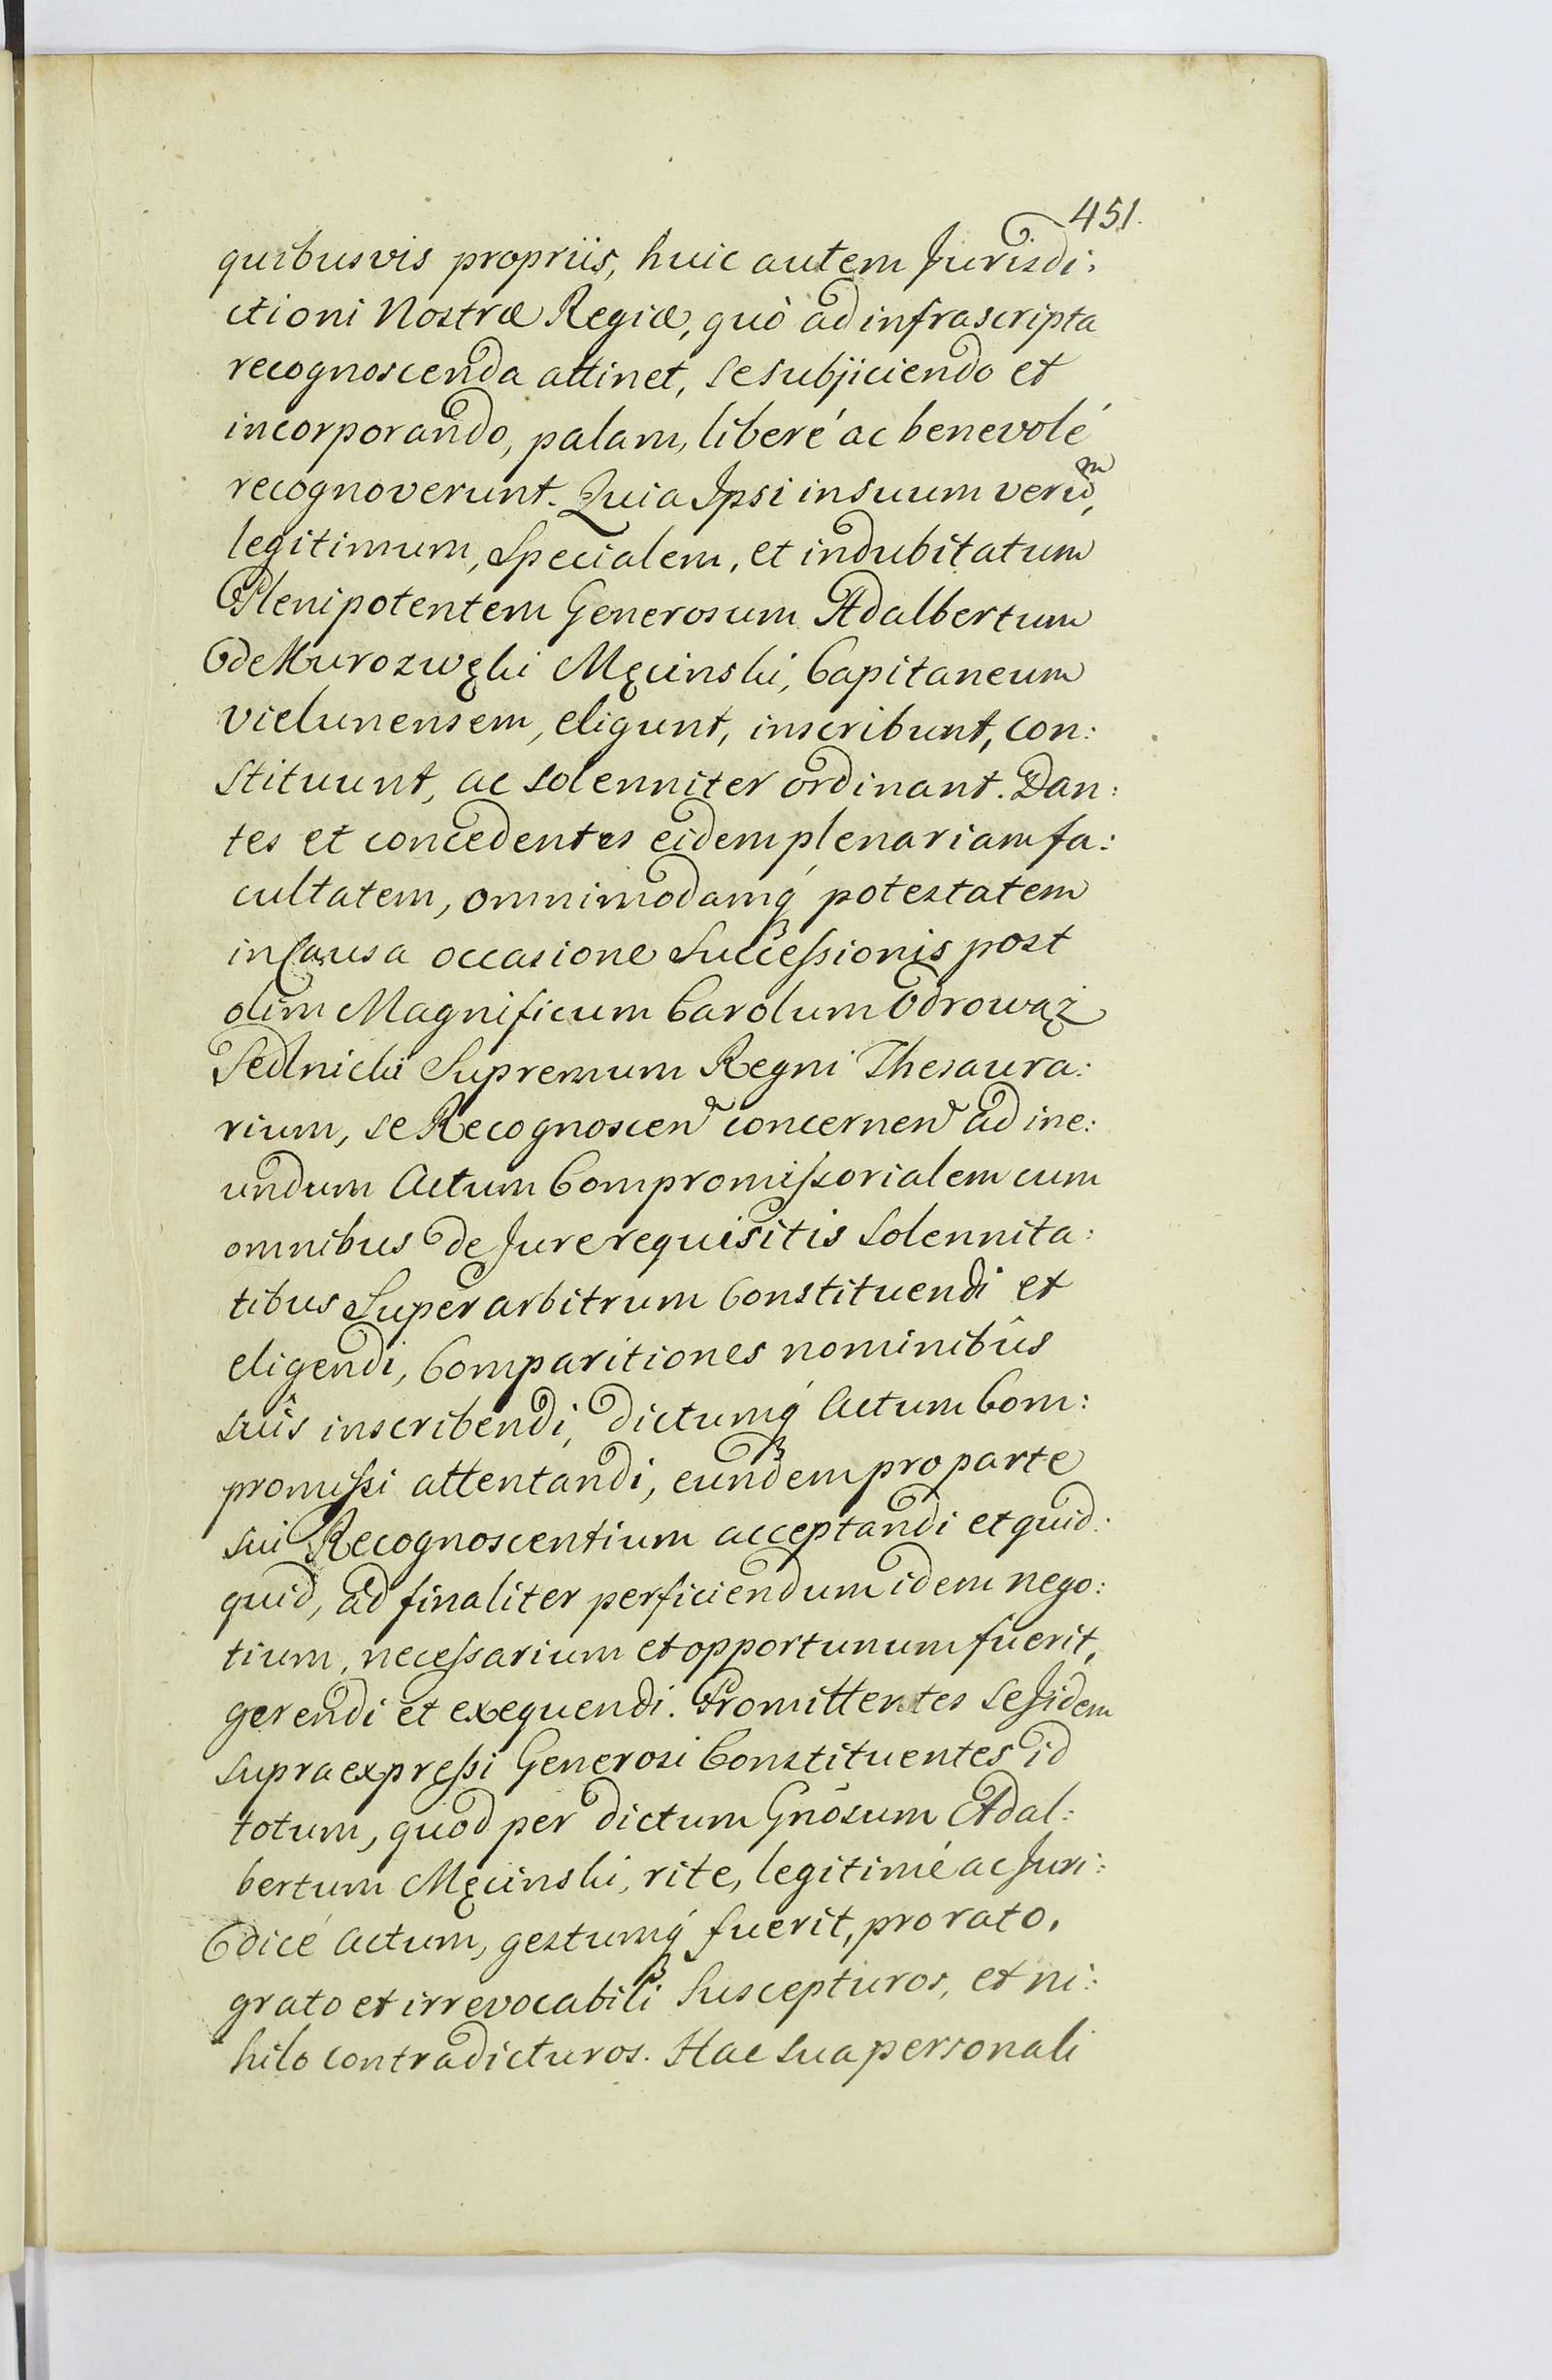 451.
quibusvis propriis, huic autem Jurisdi:
ctioni Nostræ Regiæ, quò ad infrascripta
recognoscenda attinet, se subjiciendo et
incorporando, palam, liberé ac benevolé
recognoverunt. Quia Ipsi in suum verũm,
legitimum, Specialem, et indubitatum
Plenipotentem Generosum Adalbertum
de Kurozwęki Męcinski, Capitaneum
Vielunensem, eligunt, inscribunt, con:
stituunt, ac solenniter ordinant. Dan:
tes et concedentes eidem plenariam fa:
cultatem, omnimodamq́ potestatem
in Causa occasione Successionis post
olim Magnificum Carolum Odrowąż
Sedlnicki Supremum Regni Thesaura:
rium, se Recognoscen concernen ad ine:
undum Actum Compromissorialem cum
omnibus de Jure requisitis Solennita:
tibus Superarbitrum Constituendi et
eligendi, Comparitiones nominibûs
suîs inscribendi, dictumq́ Actum Com:
promissi attentandi, eundem pro parte
sui Recognoscentium acceptandi et quid:
quid, ad finaliter perficiendum idem nego:
tium, necessarium et opportunum fuerit,
gerendi et exequendi. Promittentes se Jidem
supra expressi Generosi Constituentes id
totum, quod per dictum Gnõsum Adal:
bertum Męcinski, rite, legitimé ac Juri:
dicé actum, gestumq́ fuerit, pro rato,
grato et irrevocabili suscepturos, et ni:
hilo contradicturos. Hac sua personali